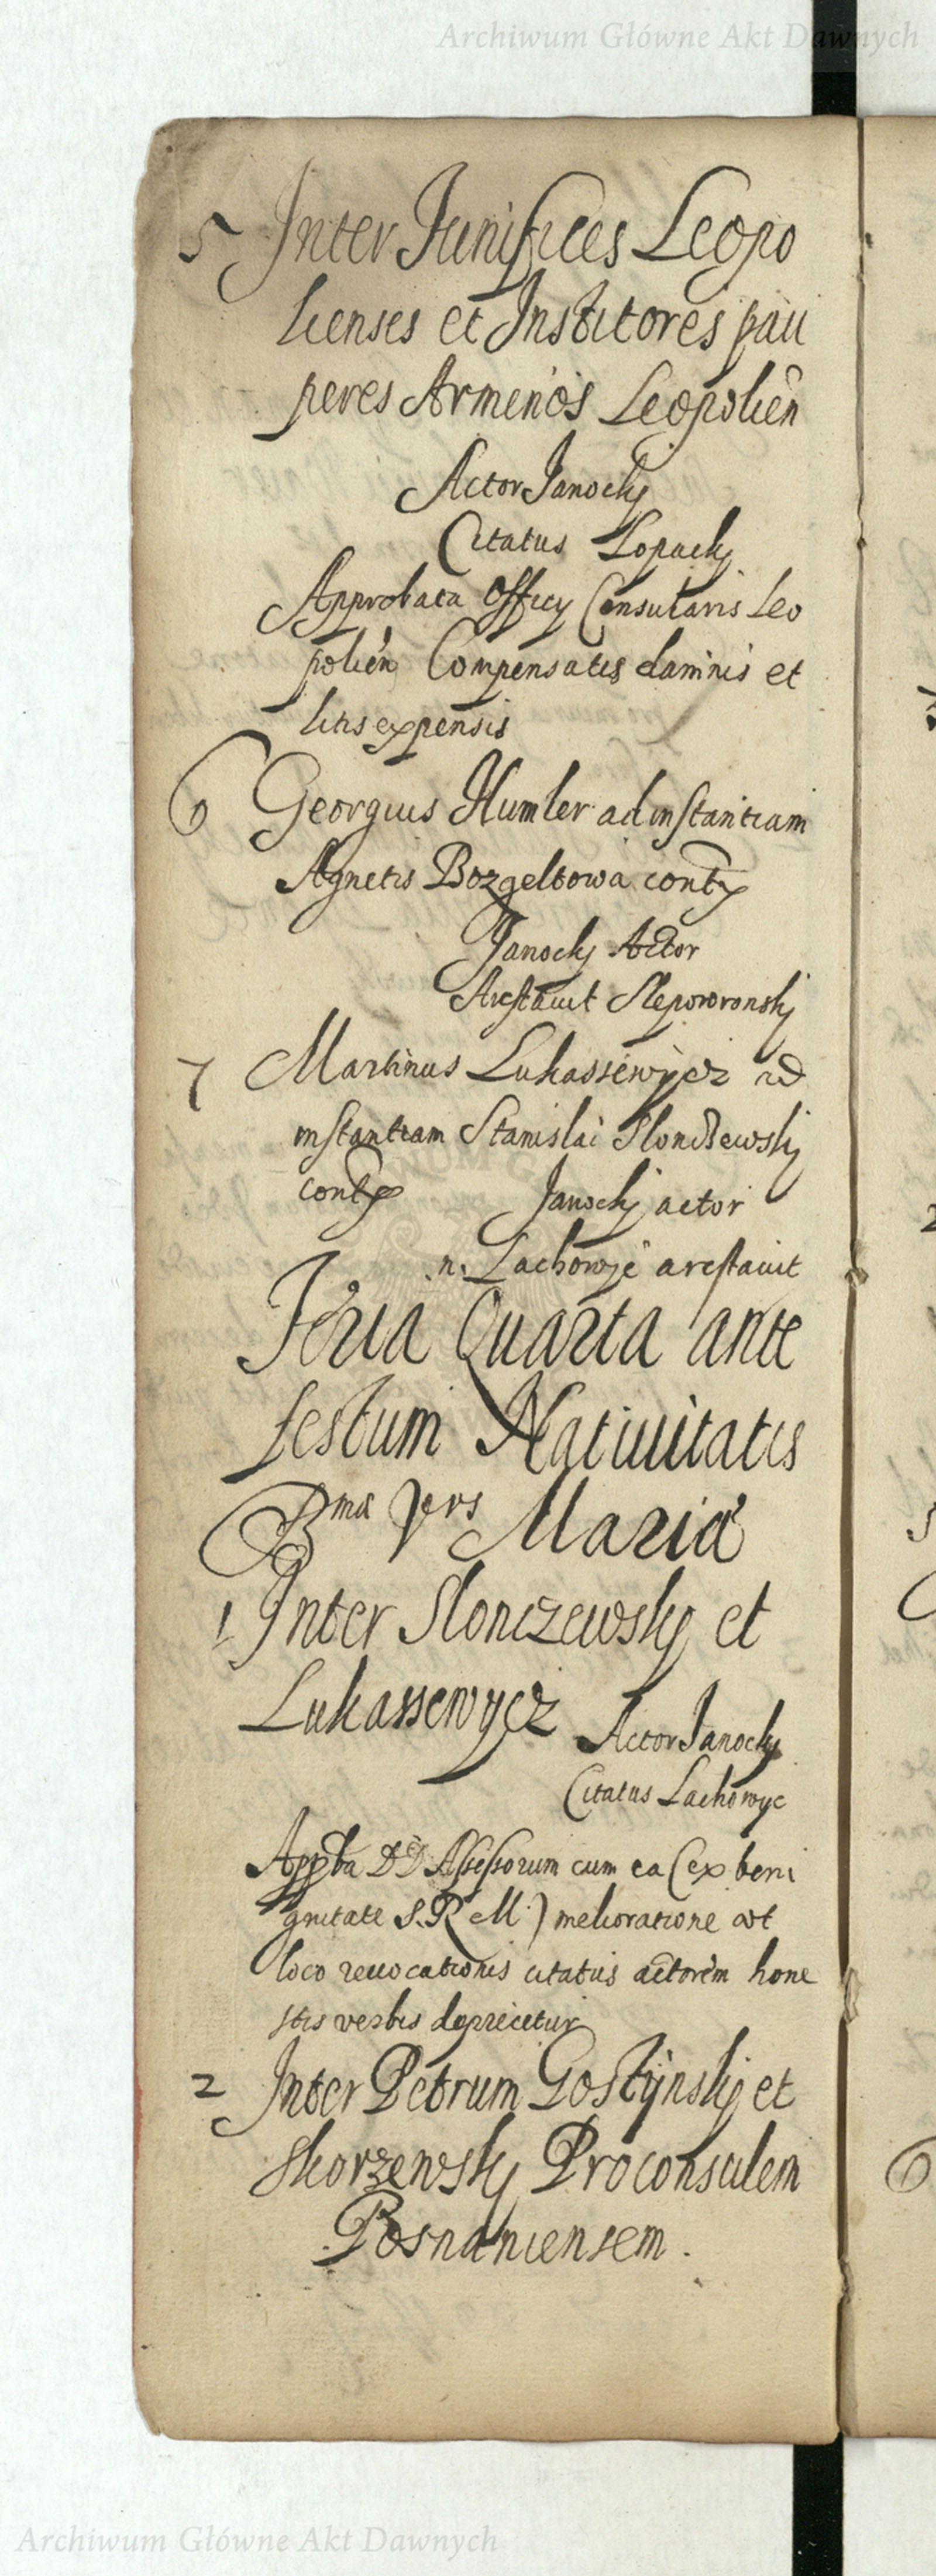 Archiwum Główne Akt Dawnych
5 Inter Funifices Leopo
lienses et Institores pau
peres Armenos Leopolien
Actor Janocky
Citatus Lopacky
Approbata Officy Consularis Leo
polien Compensatis damnis et
litis expensis
6 Georgius Humler ad instantiam
Agnetis Bozgeltowa cont
Janocky Actor
Arestauit Sleporowronsky
7 Martinus Lukassewycz ad
instantiam Stanislai Slonczewsky
cont Janocky actor
n. Lachowic arestauit
Feria Quarta ante
festum Natiuitatis
Bmae Vrs Mariae
1 Inter Slonczewsky et
Lukassewycz Actor Janocky
Citatus Lachowyc
Appbta DD Assessorum cum ea (ex beni
gnitate S. R M.) melioratione vt
loco reuocationis citatus actorem hone
stis verbis deprecetur
2 Inter Petrum Gostynsky et
Skorzewsky Proconsulem
Posnaniensem.
Archiwum Główne Akt Dawnych